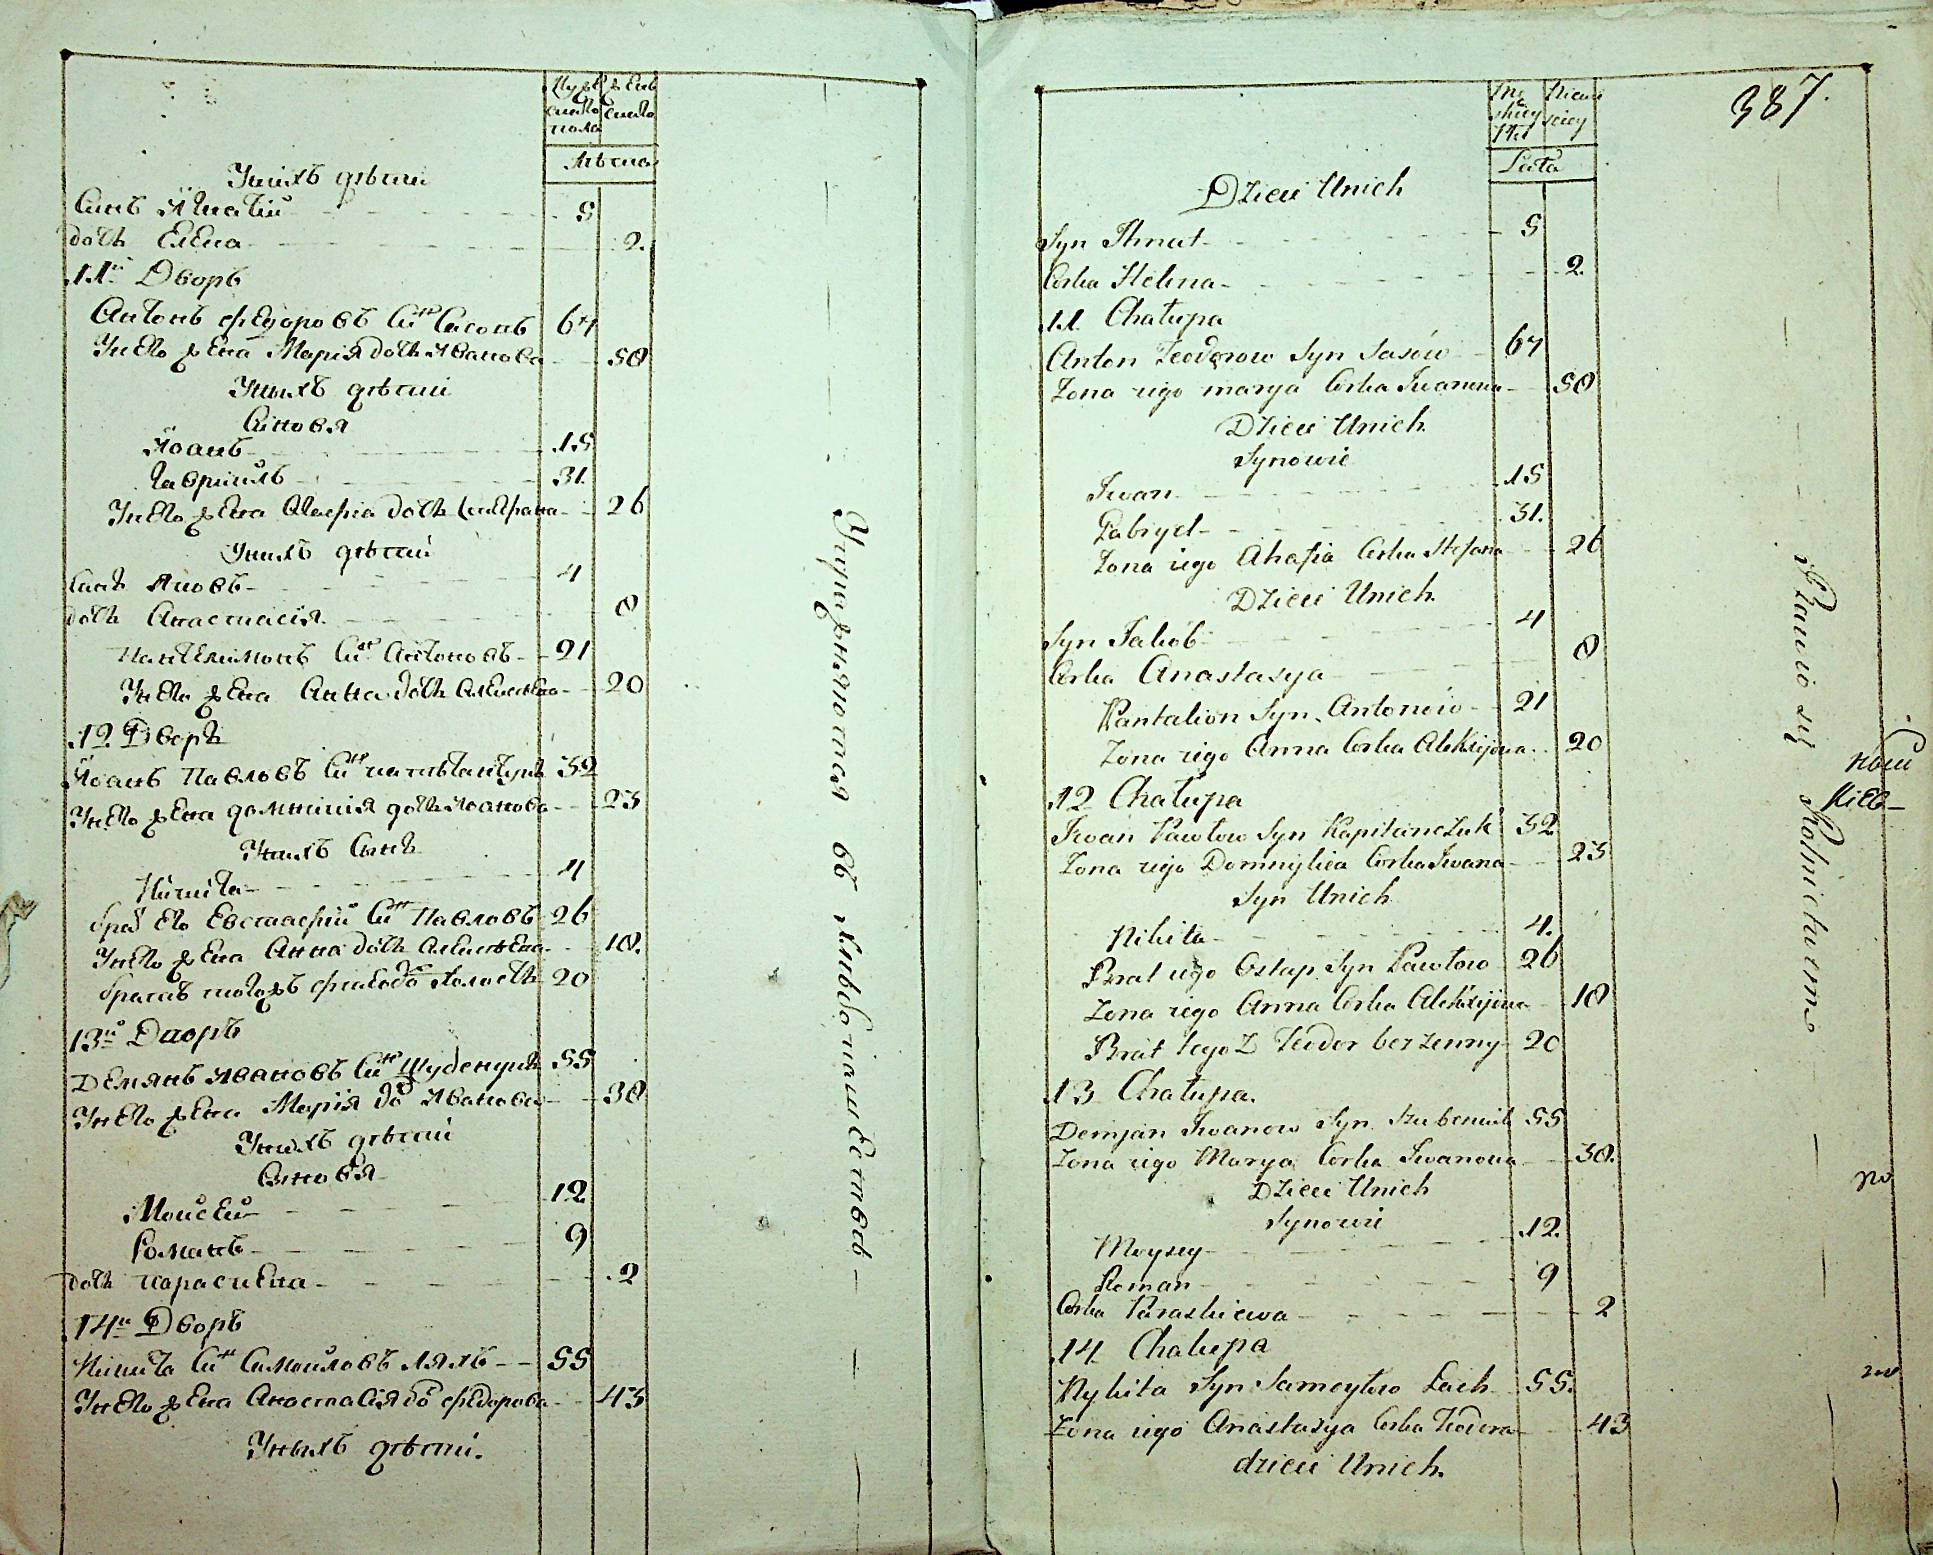 Мужеска пола
женска
Лѣта
Унихъ дѣти
Синъ Игнатій 5
дочь Елена 2.
11й Дворъ
Антонъ Федоровъ Синъ Сасовъ 67
Унего жена Марія дочь Иванова 50
Унихъ дѣти
Синовя
Иоанъ 15
Гавріилъ 31.
Унего жена Агафіа дочь Стефана 26
Унихъ дѣти
Синъ Яковъ 4
дочь Анастасія 8
Пантелимонъ Синъ Антоновъ 21
Унего жена Анна дочь Алексѣева 20
12 Дворъ
Иоанъ Павловъ Синъ Капитанчукъ 32
Унего жена домникія дочь Иоанова 23
Унихъ Синъ
Никита 4
братъ его Евстафій Синъ Павловъ 26
Унего жена Анна дочь Алексѣева 18.
братъ тогожъ Феодоръ холостъ 20
13й Дворъ
Демянъ Ивановъ Синъ Шубенчукъ 55
Унего жена Марія до Иванова 38
Унихъ дѣти
Синовя
Моисей 12
Романъ 9
дочь параскева 2
14й Дворъ
Никита Синъ Самойловъ Ляхъ 55
Унего жена Анастасія до Федорова 43
Унихъ дѣти.
Упражняются въ хлѣбопашествѣ
387.
Męzkiey Płci
Niewieściey
Lata
Dzieci Unich
Syn Ihnat 5
Corka Helena 2.
11. Chałupa
Anton Teodorow Syn Sasów 67
Zona iego marya Corka Iwanowa 50
Dzieci Unich
Synowie
Iwan 15
Gabryel 31.
Zona iego Ahafia Corka Stefana 26
Dzieci Unich
Syn Jakób 4
Corka Anastasya 8
Pantalion Syn Antonów 21
Zona iego Anna Corka Alekzijowa 20
12 Chałupa
Iwan Pawłow Syn Kapitanczuk 32
Zona iego Domnykiea Corka Iwana 23
Syn Unich
Nikita 4.
Brat iego Ostap Syn Pawłow 26
Zona iego Anna Corka Alekzijowa 18
Brat tegoż Teodor bez zenny 20
13 Chałupa.
Demjan Iwanow Syn Szubenuk 55
Zona iego Marya Corka Iwanowa 38.
Dzieci Unich
Synowie
Moysey 12.
Roman 9
Corka Paraskiewa 2
14 Chałupa
Nykita Syn Samoyłow Lach 55.
Zona iego Anastasya Corka Teodora 43
dzieci Unich.
Bawio się Rolnictwem